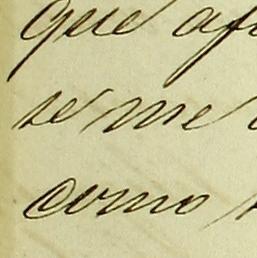 que
se me
como